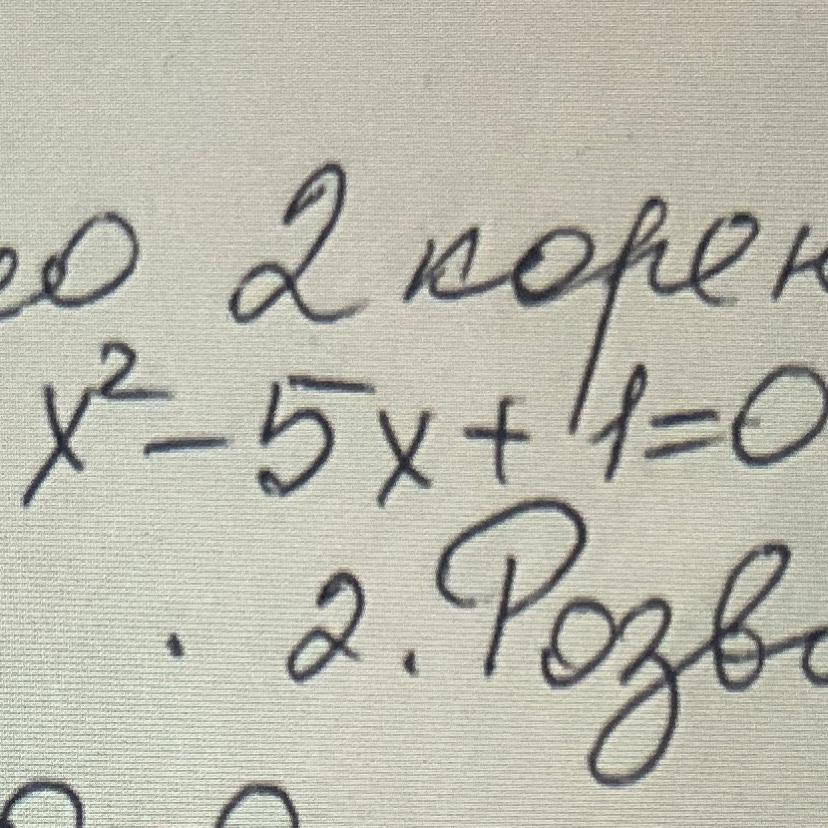 2 корен
x² - 5x + 1 = 0
. 2. Розв